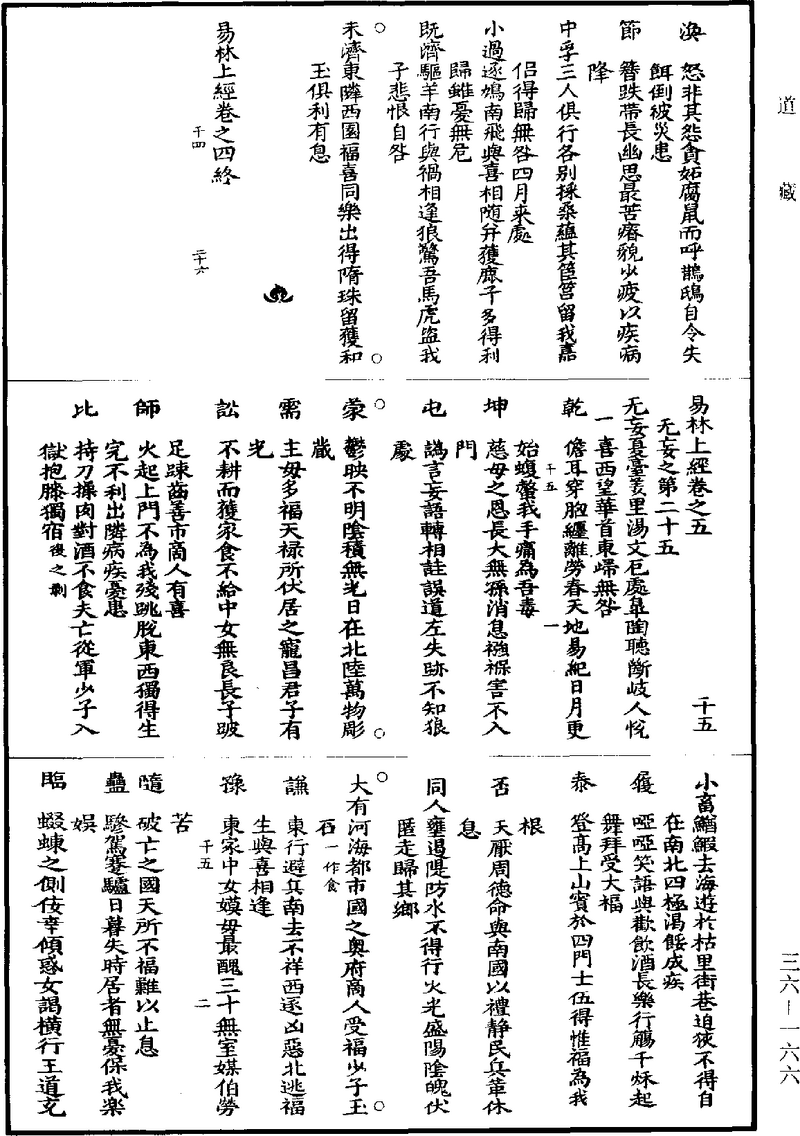 道藏
渙　怒非其怨貪妬腐鼠而呼鵲鴟自令失
餌倒被災患
節　簪跌帶長幽思最苦瘠貌少疲以疾病
降
中孚三人俱行各別採桑蘊其筐筥留我嘉
侶得歸無咎四月來處
小過逐鳩南飛與喜相隨并獲鹿子多得利
歸雖憂無危
既濟驅羊南行與禍相逢狼驚吾馬虎盜我
子悲恨自咎
未濟東隣西國福喜同樂出得隋珠留獲和
玉俱利有息
易林上經卷之四終
千四　二十六
易林上經卷之五　千五
无妄之第二十五
无妄夏臺羑里湯文厄處皐陶聽斷岐人悅
喜西望華首東歸無咎
乾　儋耳穿胸纏離勞春天地易紀日月更
始蝮螫我手痛為吾毒
千五　一
坤　慈母之恩長大無孫消息襁褓害不入
門
屯　譌言妄語轉相詿誤道左失跡不知狼
處
蒙　鬱映不明陰積無光日在北陸萬物彫
歲
需　主母多福天祿所伏居之寵昌君子有
光
訟　不耕而獲家食不給中女無良長子跛
足踈齒善市商人有喜
師　火起上門不為我殘跳脫東西獨得生
完不利出隣病疾憂患
比　持刀操肉對酒不食夫亡從軍少子入
獄抱膝獨宿後之剝
小畜鰌鰕去海遊於枯里街巷迫狹不得自
在南北四極渴餒成疾
履　啞啞笑語與歡飲酒長樂行觴千秋起
舞拜受大福
泰　登高上山賓於四門士伍得惟福為我
根
否　天厭周德命與南國以禮靜民兵革休
息
同人壅遏隄防水不得行火光盛陽陰魄伏
匿走歸其鄉
大有河海都市國之奧府商人受福少子玉
石一作食
謙　東行避兵南去不祥西逐凶惡北逃福
生與喜相逢
豫　東家中女嫫母最醜三十無室媒伯勞
千五　二
苦
隨　破亡之國天所不福難以止息
蠱　驂駕蹇驢日暮失時居者無憂保我樂
娛
臨　蝃蝀之側佞幸傾惑女謁橫行王道充
三六—一六六